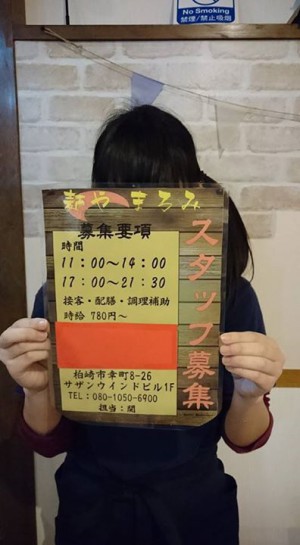 No Smoking
禁煙/禁止吸烟
麺やまろみ
スタッフ募集
募集要項
時間
11：00～14：00
17：00～21：30
接客・配膳・調理補助
時給 780円～
柏崎市幸町8-26
サザンウインドビル1F
TEL:080-1050-6900
担当：関